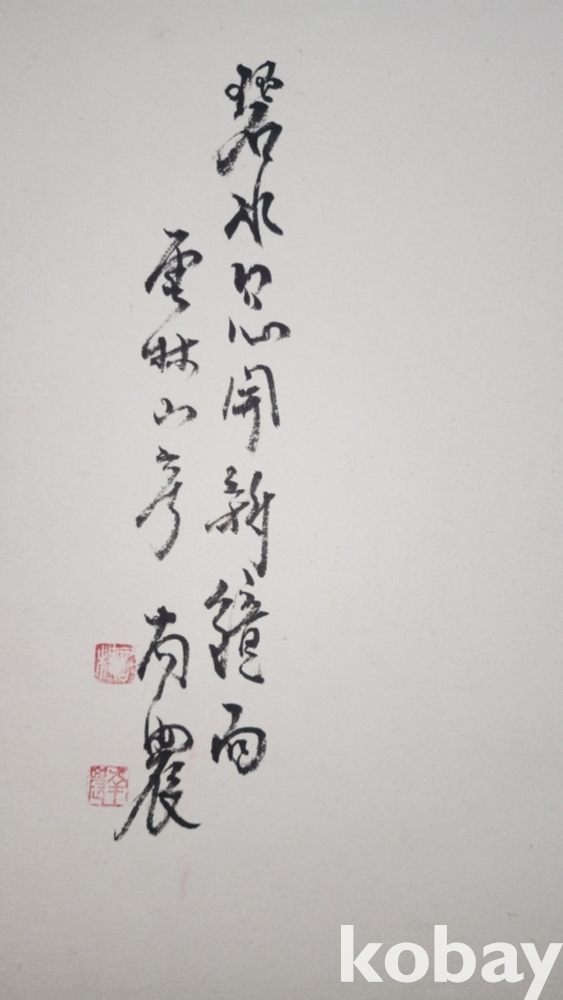 碧水忽開新鏡面
雲林山房 南農
kobay